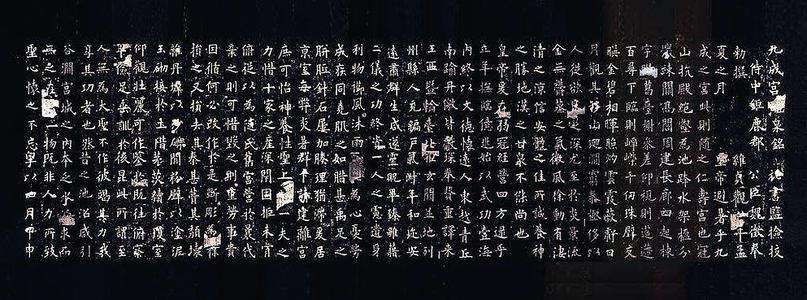 九成宮醴泉銘 秘書監檢校
侍中鉅鹿郡公臣魏徵奉
勑撰 維貞觀年孟
夏之月 帝避暑乎九
成之宮此則隨之仁壽宮也冠
山抗殿絕壑為池跨水架楹分
巖竦闕高閣周建長廊四起棟
宇膠葛臺榭參差仰視則迢遰
百尋下臨則崢嶸千仞珠璧交
映金碧相暉照灼雲霞蔽虧日
月觀其移山迴澗窮泰極侈以
人從欲良足深尤至於炎景流
金無鬱蒸之氣微風徐動有淒
清之涼信安體之佳所誠養神
之勝地漢之甘泉不能尚也
皇帝爰在弱冠經營四方逮乎
立年撫臨億兆始以武功壹海
內終以文德懷遠人東越青丘
南踰丹徼皆獻琛奉贄重譯來
王西暨輪臺北拒玄闕並地列
州縣人充編戶氣淑年和邇安
遠肅群生咸遂靈貺畢臻雖藉
二儀之功終資一人之慮遺身
利物櫛風沐雨百姓為心憂勞
成疾同堯肌之如腊甚禹足之
胼胝針石屢加腠理猶滯爰居
京室每弊炎暑群下請建離宮
庶可怡神養性聖上愛一夫之
力惜十家之產深閉固拒未肯
俯從以為隨氏舊宮營於曩代
棄之則可惜毀之則重勞事貴
因循何必改作於是斲彫為樸
損之又損去其泰甚葺其頹壞
雜丹墀以沙礫間粉壁以塗泥
玉砌接於土階茅茨續於瓊室
仰觀壯麗可作鑒於既往俯察
卑儉足垂訓於後昆此所謂至
人無為大聖不作彼竭其力我
享其功者也然昔之池沼咸引
谷澗宮城之內本乏水求而
無之在一物既非人力所致
聖心懷之不忘粵以四月甲申